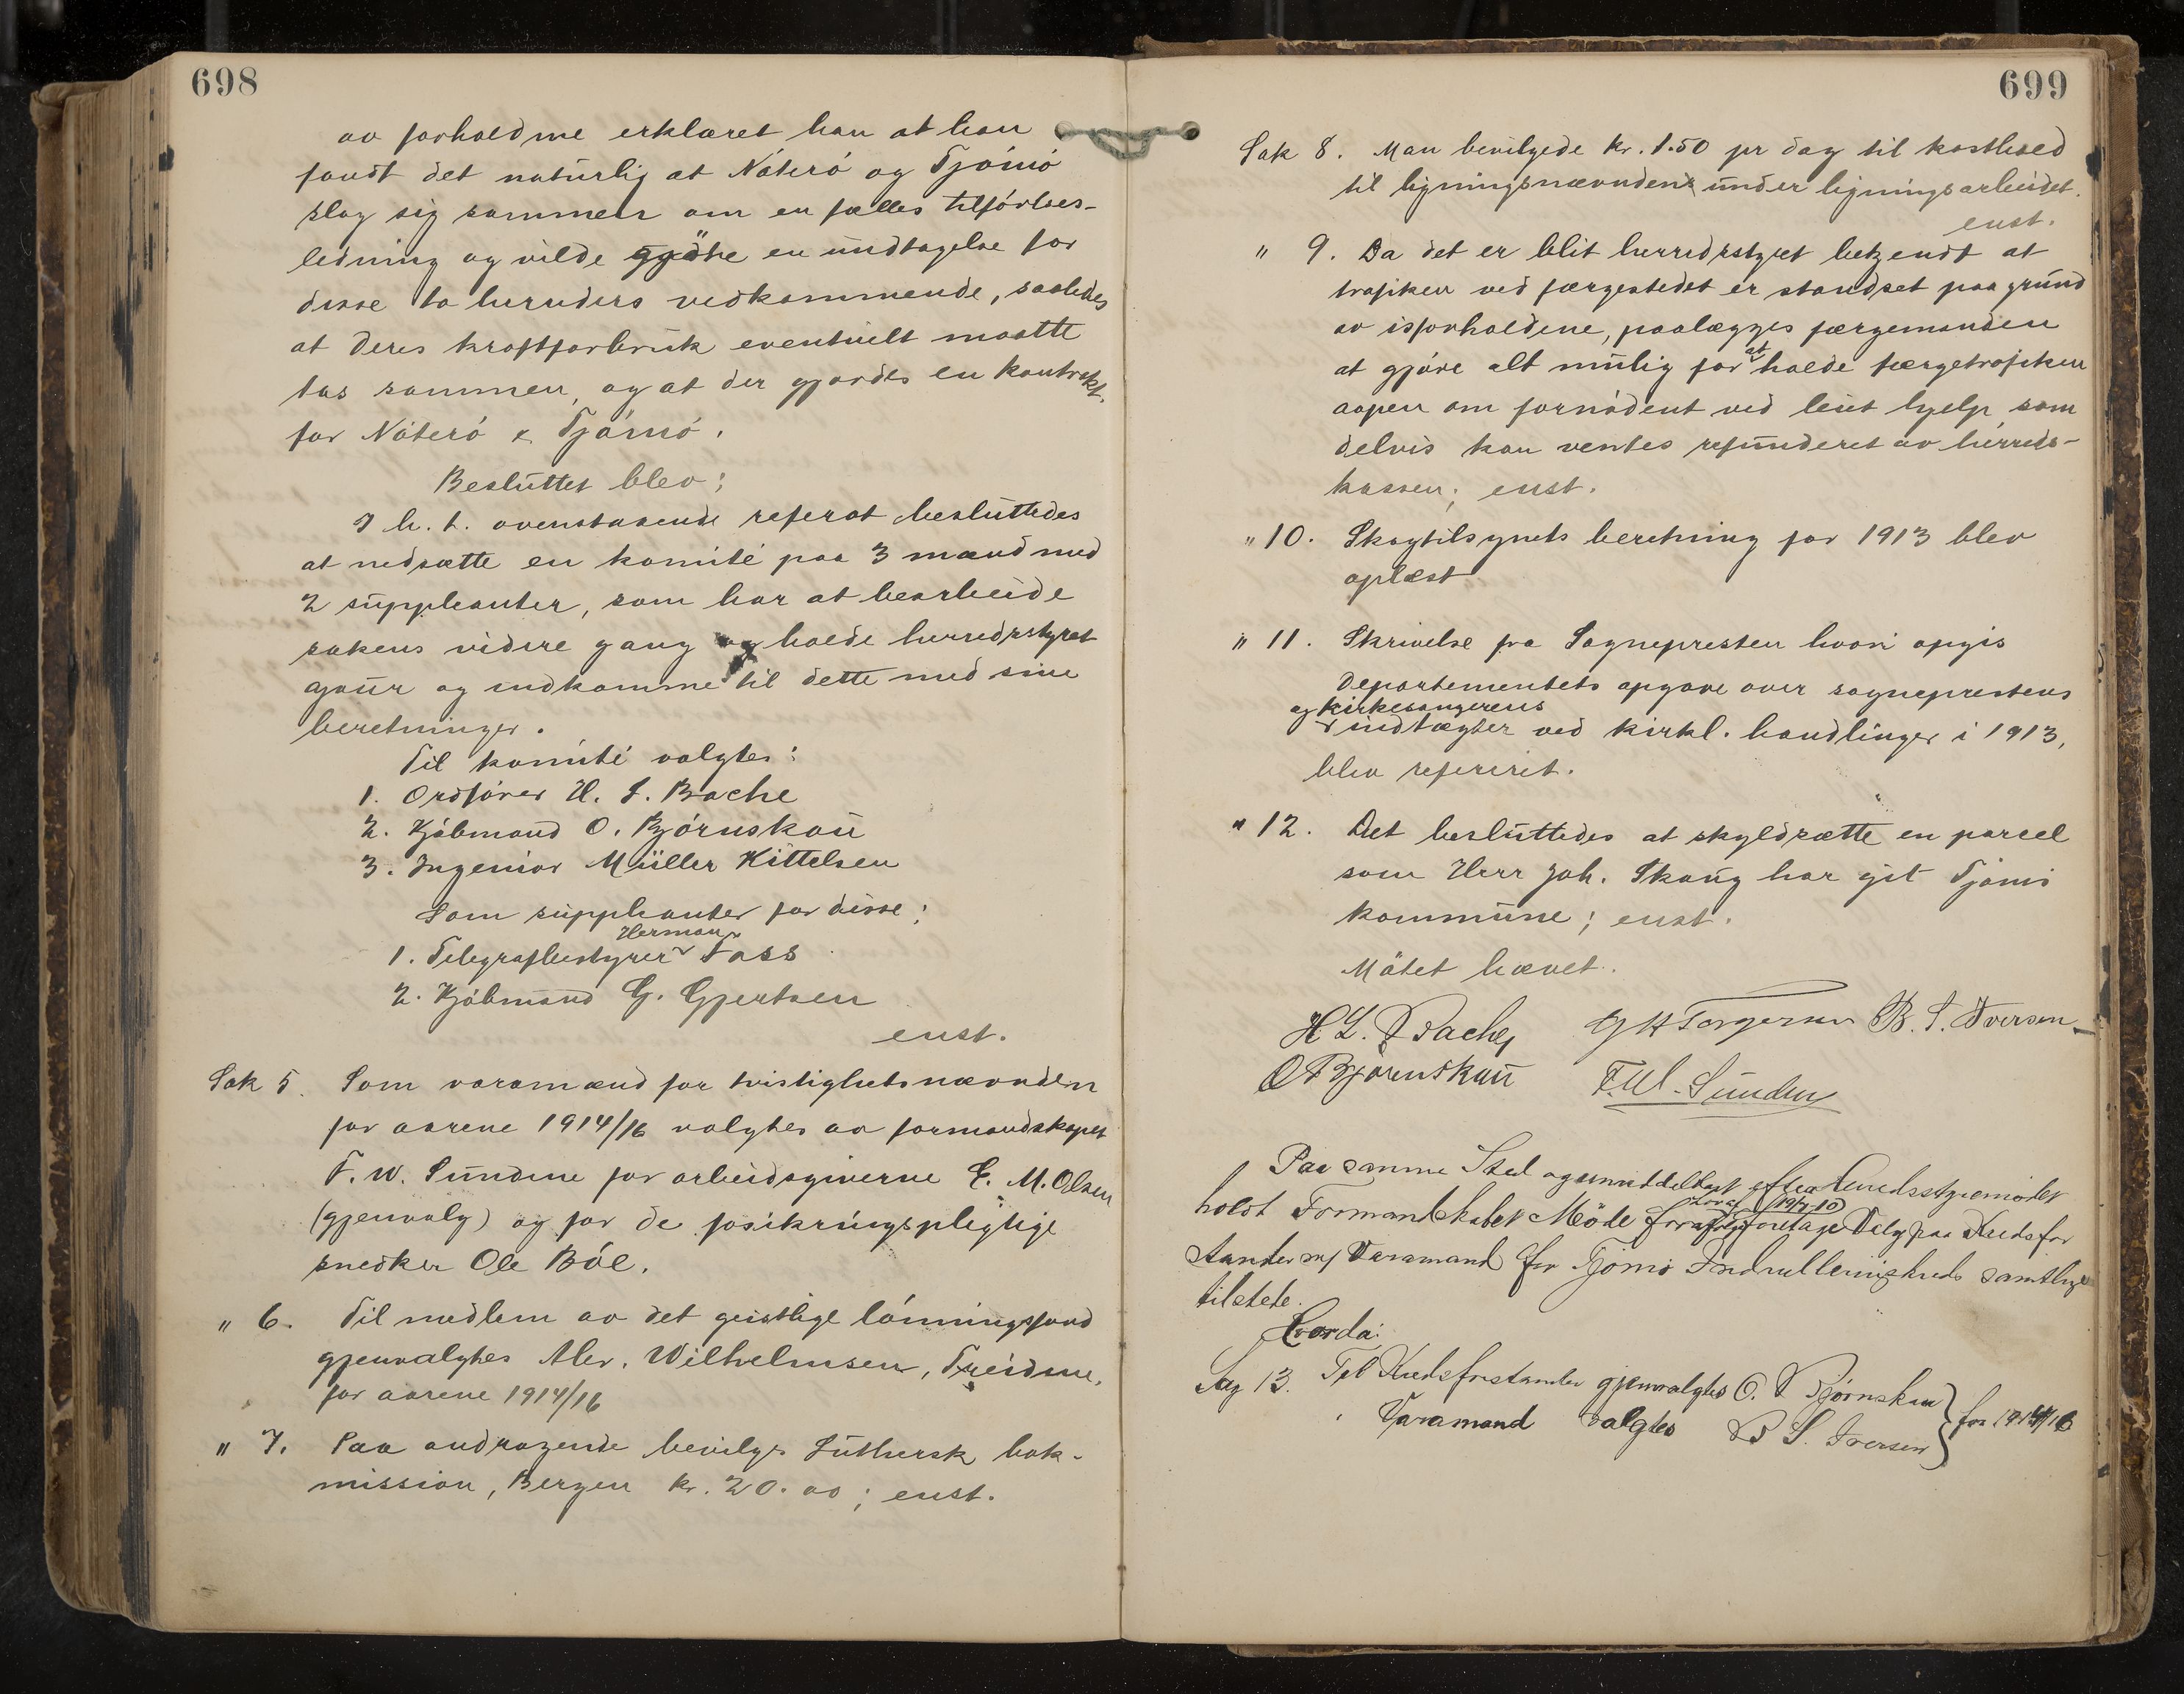 698
av forholdene erklæret han at han
fandt det naturlig at Nøterø og Tjømø
slog sig sammen om en fælles tilførsels-
ledning og vilde gjøre en undtagelse for
disse to herreders vedkommende, saaledes
at deres kraftforbruk eventuelt maatte
tas sammen, og at der gjordes en kontrakt
for Nøterø & Tjømø.
Besluttet blev:
I h. t. ovenstaaende referat besluttedes
at nedsætte en komité paa 3 mænd med
2 suppleanter, som har at bearbeide
sakens videre gang og holde herredsstyret
ajour og indkomme til dette med sine
beretninger.
Til komité valgtes:
1. Ordfører H. L. Bache
2. Kjøbmand O. Bjørnskau
3. Ingeniør Müller Kittelsen
Som suppleanter for disse:
1. Telegrafbestyrer Herman Foss
2. Kjøbmand G. Gjertsen
enst.
Sak 5. Som varamænd for tvistighetsnævnden
for aarene 1914/16 valgtes av formandskapet
F. W. Sundene for arbeidsgiverne E. M. Olsen
(gjenvalg) og for de forsikringspligtige
snedker Ole Bøe.
" 6. Til medlem av det geistlige lønningsfond
gjenvalgtes Alev. Wilhelmsen, Treidene,
for aarene 1914/16
" 7. Paa andragende bevilges Luthersk bok-
mission, Bergen kr. 20.00; enst.
699
Sak 8. Man bevilgede kr. 1.50 pr dag til kosthold
til ligningsnævnden under ligningsarbeidet.
enst.
" 9. Da det er blit herredsstyret bekjendt at
trafiken ved færgestedet er standset paa grund
av isforholdene, paalægges færgemanden
at gjøre alt mulig for at holde færgetrafiken
aapen om fornødent ved leiet hjelp som
delvis kan ventes refunderet av herreds-
kassen; enst.
" 10. Skogtilsynets beretning for 1913 blev
oplæst
" 11. Skrivelse fra Sognepresten hvori opgis
Departementets opgave over sogneprestens
og kirkesangerens
indtægter ved kirkl. handlinger i 1913,
blev refereret.
" 12. Det besluttedes at skyldsætte en parcel
som Herr Joh. Skaug har git Tjømø
kommune; enst.
Møtet hævet.
H L. Bache G H Torgersen B. S. Iversen
O Bjørnskau F.W. Sunden
Paa samme Sted og umiddelbart efter Herredsstyremødet
holdt Formandskabet Møde for at foretage Valg paa Kredsfor
stander m/ Varamand for Tjømø Indrulleringskreds samtlige
tilstede.
Hvorda:
Sag 13. Til Kredsforstander gjenvalgtes O. Bjørnskau
" Varamand valgtes B S. Iversen } for 1914/16